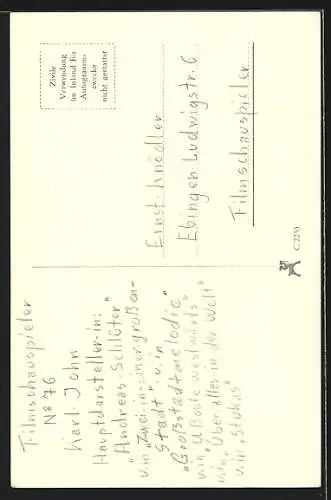 Filmschauspieler
No 76
Karl John
Hauptdarsteller in:
"Andreas Schlüter"
u. in "Zwei in einer großen-
Stadt" u. in
"Großstadtmelodie"
u. in "U Boote westwärts"
u. in "Über alles in der Welt"
u. in "Stukas"
Zivile
Verwendung
im Inland für
Autogramm-
zwecke
nicht gestattet
Ernst Knödler
Ebingen Ludwigstr. 6
Filmschauspieler
C 2253